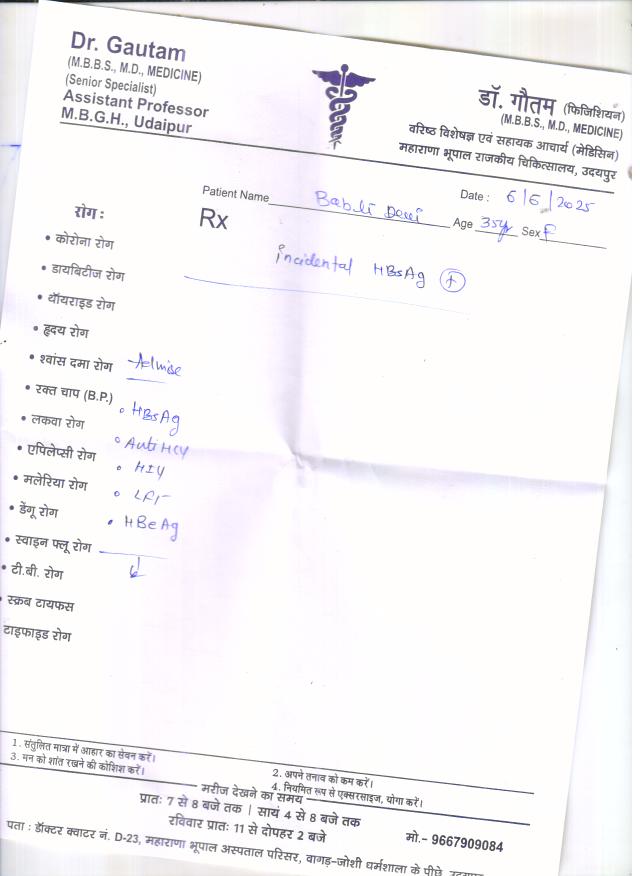 Dr. Gautam
(M.B.B.S., M.D., MEDICINE)
(Senior Specialist)
Assistant Professor
M.B.G.H., Udaipur
डॉ. गौतम (फिजिशियन)
(M.B.B.S., M.D., MEDICINE)
वरिष्ठ विशेषज्ञ एवं सहायक आचार्य (मेडिसिन)
महाराणा भूपाल राजकीय चिकित्सालय, उदयपुर
Date : 6/6/2025
Patient Name Babli Devi Age 35y Sex F
Rx
incidental HBsAg +
रोग :
• कोरोना रोग
• डायबिटीज रोग
• थॉयराइड रोग
• हृदय रोग
• श्वांस दमा रोग Advise
• रक्त चाप (B.P.)
• HBsAg
• लकवा रोग
• Anti HCV
• एपिलेप्सी रोग
• HIV
• मलेरिया रोग
• LFT
• डेंगू रोग
• HBeAg
• स्वाइन फ्लू रोग
• टी.बी. रोग
• स्क्रब टायफस
टाइफाइड रोग
1. संतुलित मात्रा में आहार का सेवन करें।
2. अपने तनाव को कम करें।
3. मन को शांत रखने की कोशिश करें।
4. नियमित रूप से एक्सरसाइज, योगा करें।
मरीज देखने का समय
प्रातः 7 से 8 बजे तक | सायं 4 से 8 बजे तक
रविवार प्रातः 11 से दोपहर 2 बजे
मो.- 9667909084
पता : डॉक्टर क्वाटर नं. D-23, महाराणा भूपाल अस्पताल परिसर, वागड़-जोशी धर्मशाला के पीछे,